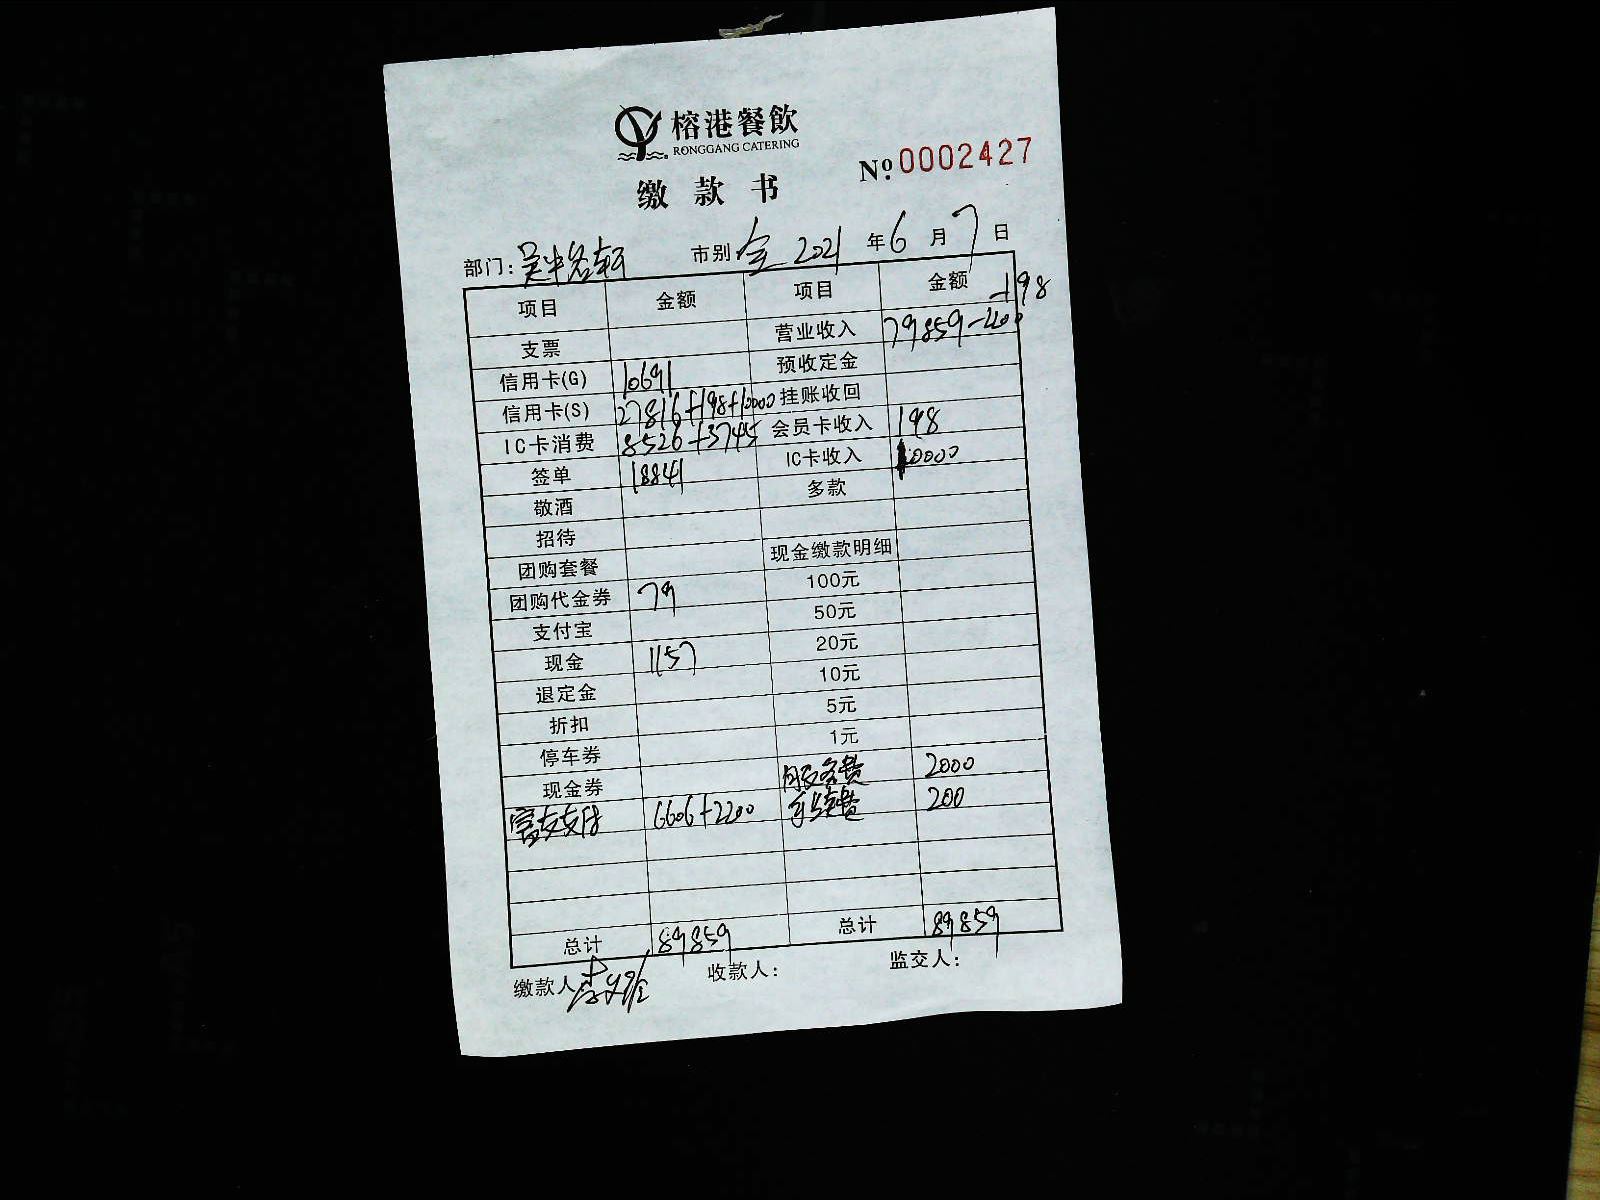 榕港餐飲
RONGGANG CATERING
缴款书
Nº:0002427
部门: 市别 全 2021年6月7日
项目 金额 项目 金额
支票 营业收入 79859-2200-198
信用卡(G) 10691 预收定金
信用卡(S) 27816+198+10000 挂账收回
IC卡消费 8526+3745 会员卡收入 198
签单 18841 IC卡收入 10000
敬酒 多款
招待
团购套餐 现金缴款明细
团购代金券 79 100元
支付宝 50元
现金 1157 20元
退定金 10元
折扣 5元
停车券 1元
现金券 服务费 2000
富友支付 6606+2200 手续费 200
总计 89859 总计 89859
缴款人 收款人: 监交人: